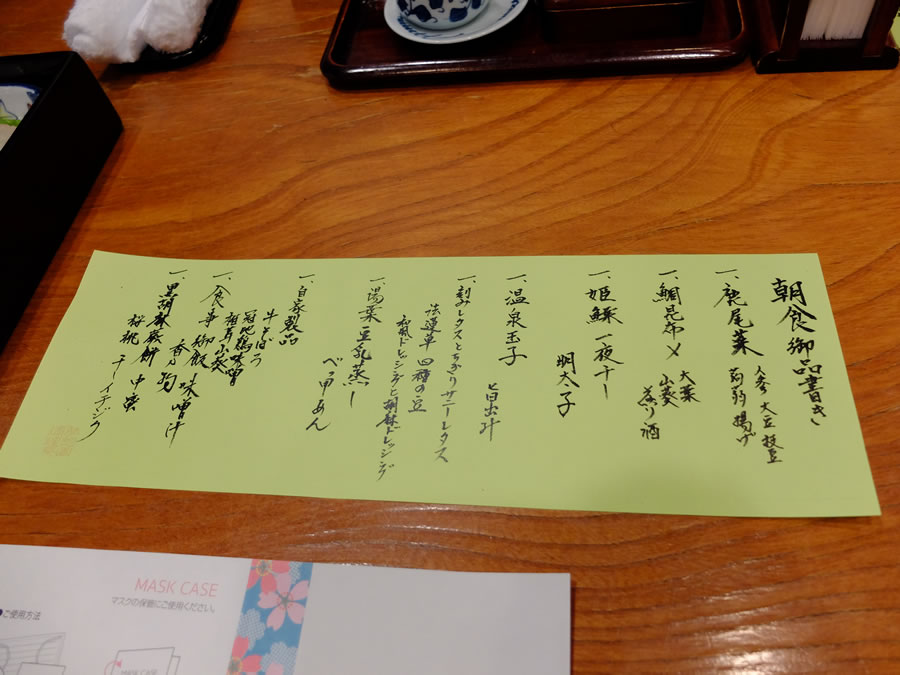 朝食御品書き
一、鹿尾菜
人参 大豆 枝豆
蒟蒻 揚げ
一、鯛昆布〆
大葉
山葵
煎り酒
一、姫鰈一夜干し
明太子
一、温泉玉子
旨出汁
一、刻みレタスとちぎりサニーレタス
法蓮草 四種の豆
和風ドレッシングと胡麻ドレッシング
一、湯葉豆乳蒸し
べっ甲あん
一、自家製品
牛そぼろ
地鶏味噌
山葵
一、食事 御飯 味噌汁
香の物
一、黒胡麻蕨餅 中実
桜桃
MASK CASE
マスクの保管にご使用ください。
●ご使用方法
MASK CASE